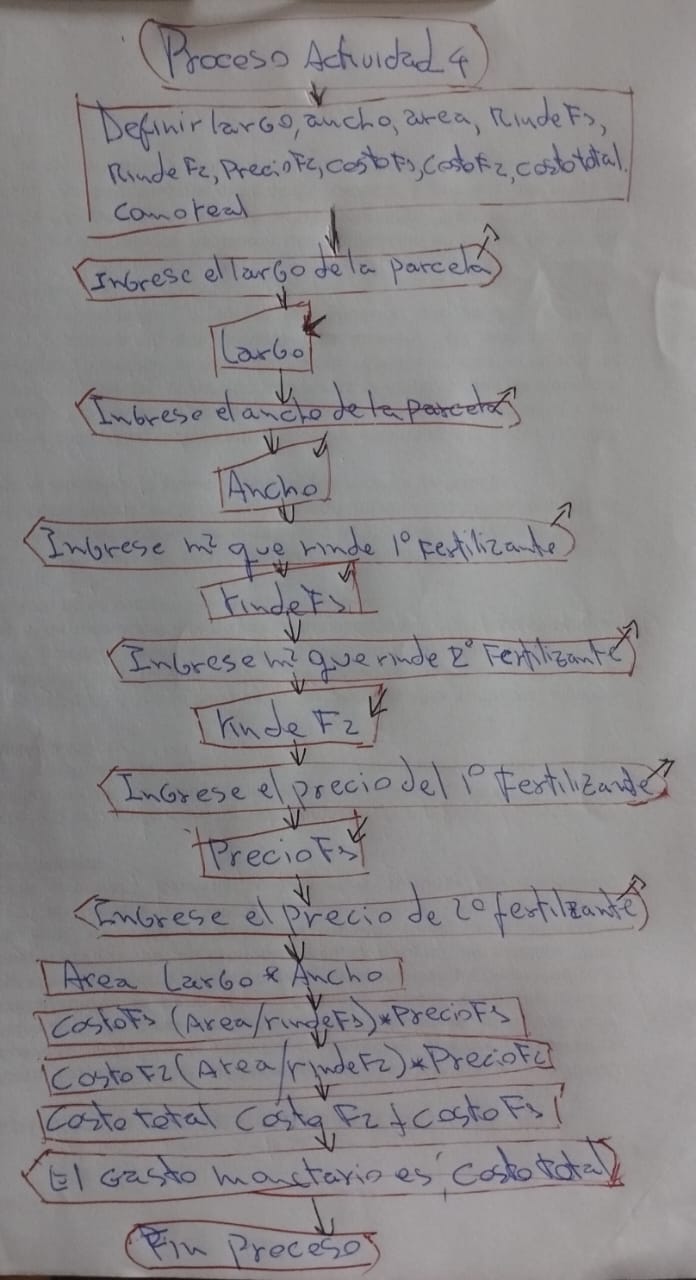 Proceso Actividad 4
Definir largo, ancho, area, RindeF1,
RindeF2, PrecioF2, costoF1, CostoF2, costototal.
Como real
Ingrese el largo de la parcela
Largo
Ingrese el ancho de la parcela
Ancho
Ingrese m² que rinde 1º Fertilizante
rindeF1
Ingrese m² que rinde 2º Fertilizante
rinde F2
Ingrese el precio del 1º Fertilizante
PrecioF1
Ingrese el Precio de 2º fertilizante
Area Largo * Ancho
CostoF1 (Area/rindeF1)*PrecioF1
CostoF2(Area/rindeF2)*PrecioF2
Costo total Costo F2 + costo F1
El Gasto monetario es, Costo total
Fin Proceso